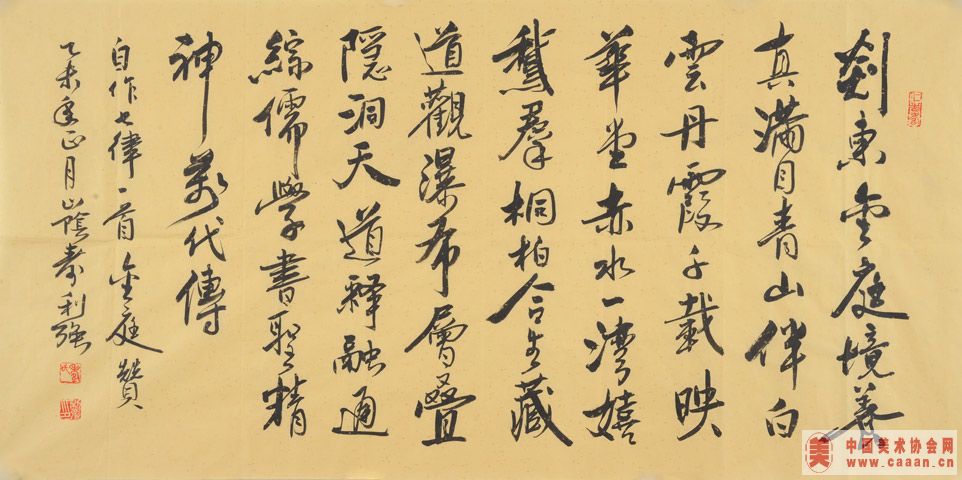 剡東金庭境养
真满目青山伴白
雲丹霞千載映
華堂赤水一湾嬉
鵞羣桐柏合生藏
道觀瀑布層疊
隐洞天道释融通
綜儒學書聖精
神萬代傳
自作七律一首金庭贊
乙未年正月山蔭利强
中国美术协会网
www.caaan.cn